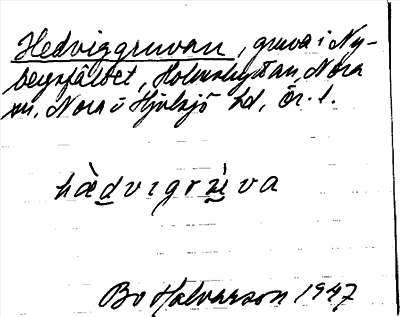 Hedviggruvan, gruva i Ny-
bergsfältet, Holmshyttan, Nora
sn, Nora o Hjulsjö hd, Ör. l.
hä̀dvıgrù̱va
Bo Halvarson 1947